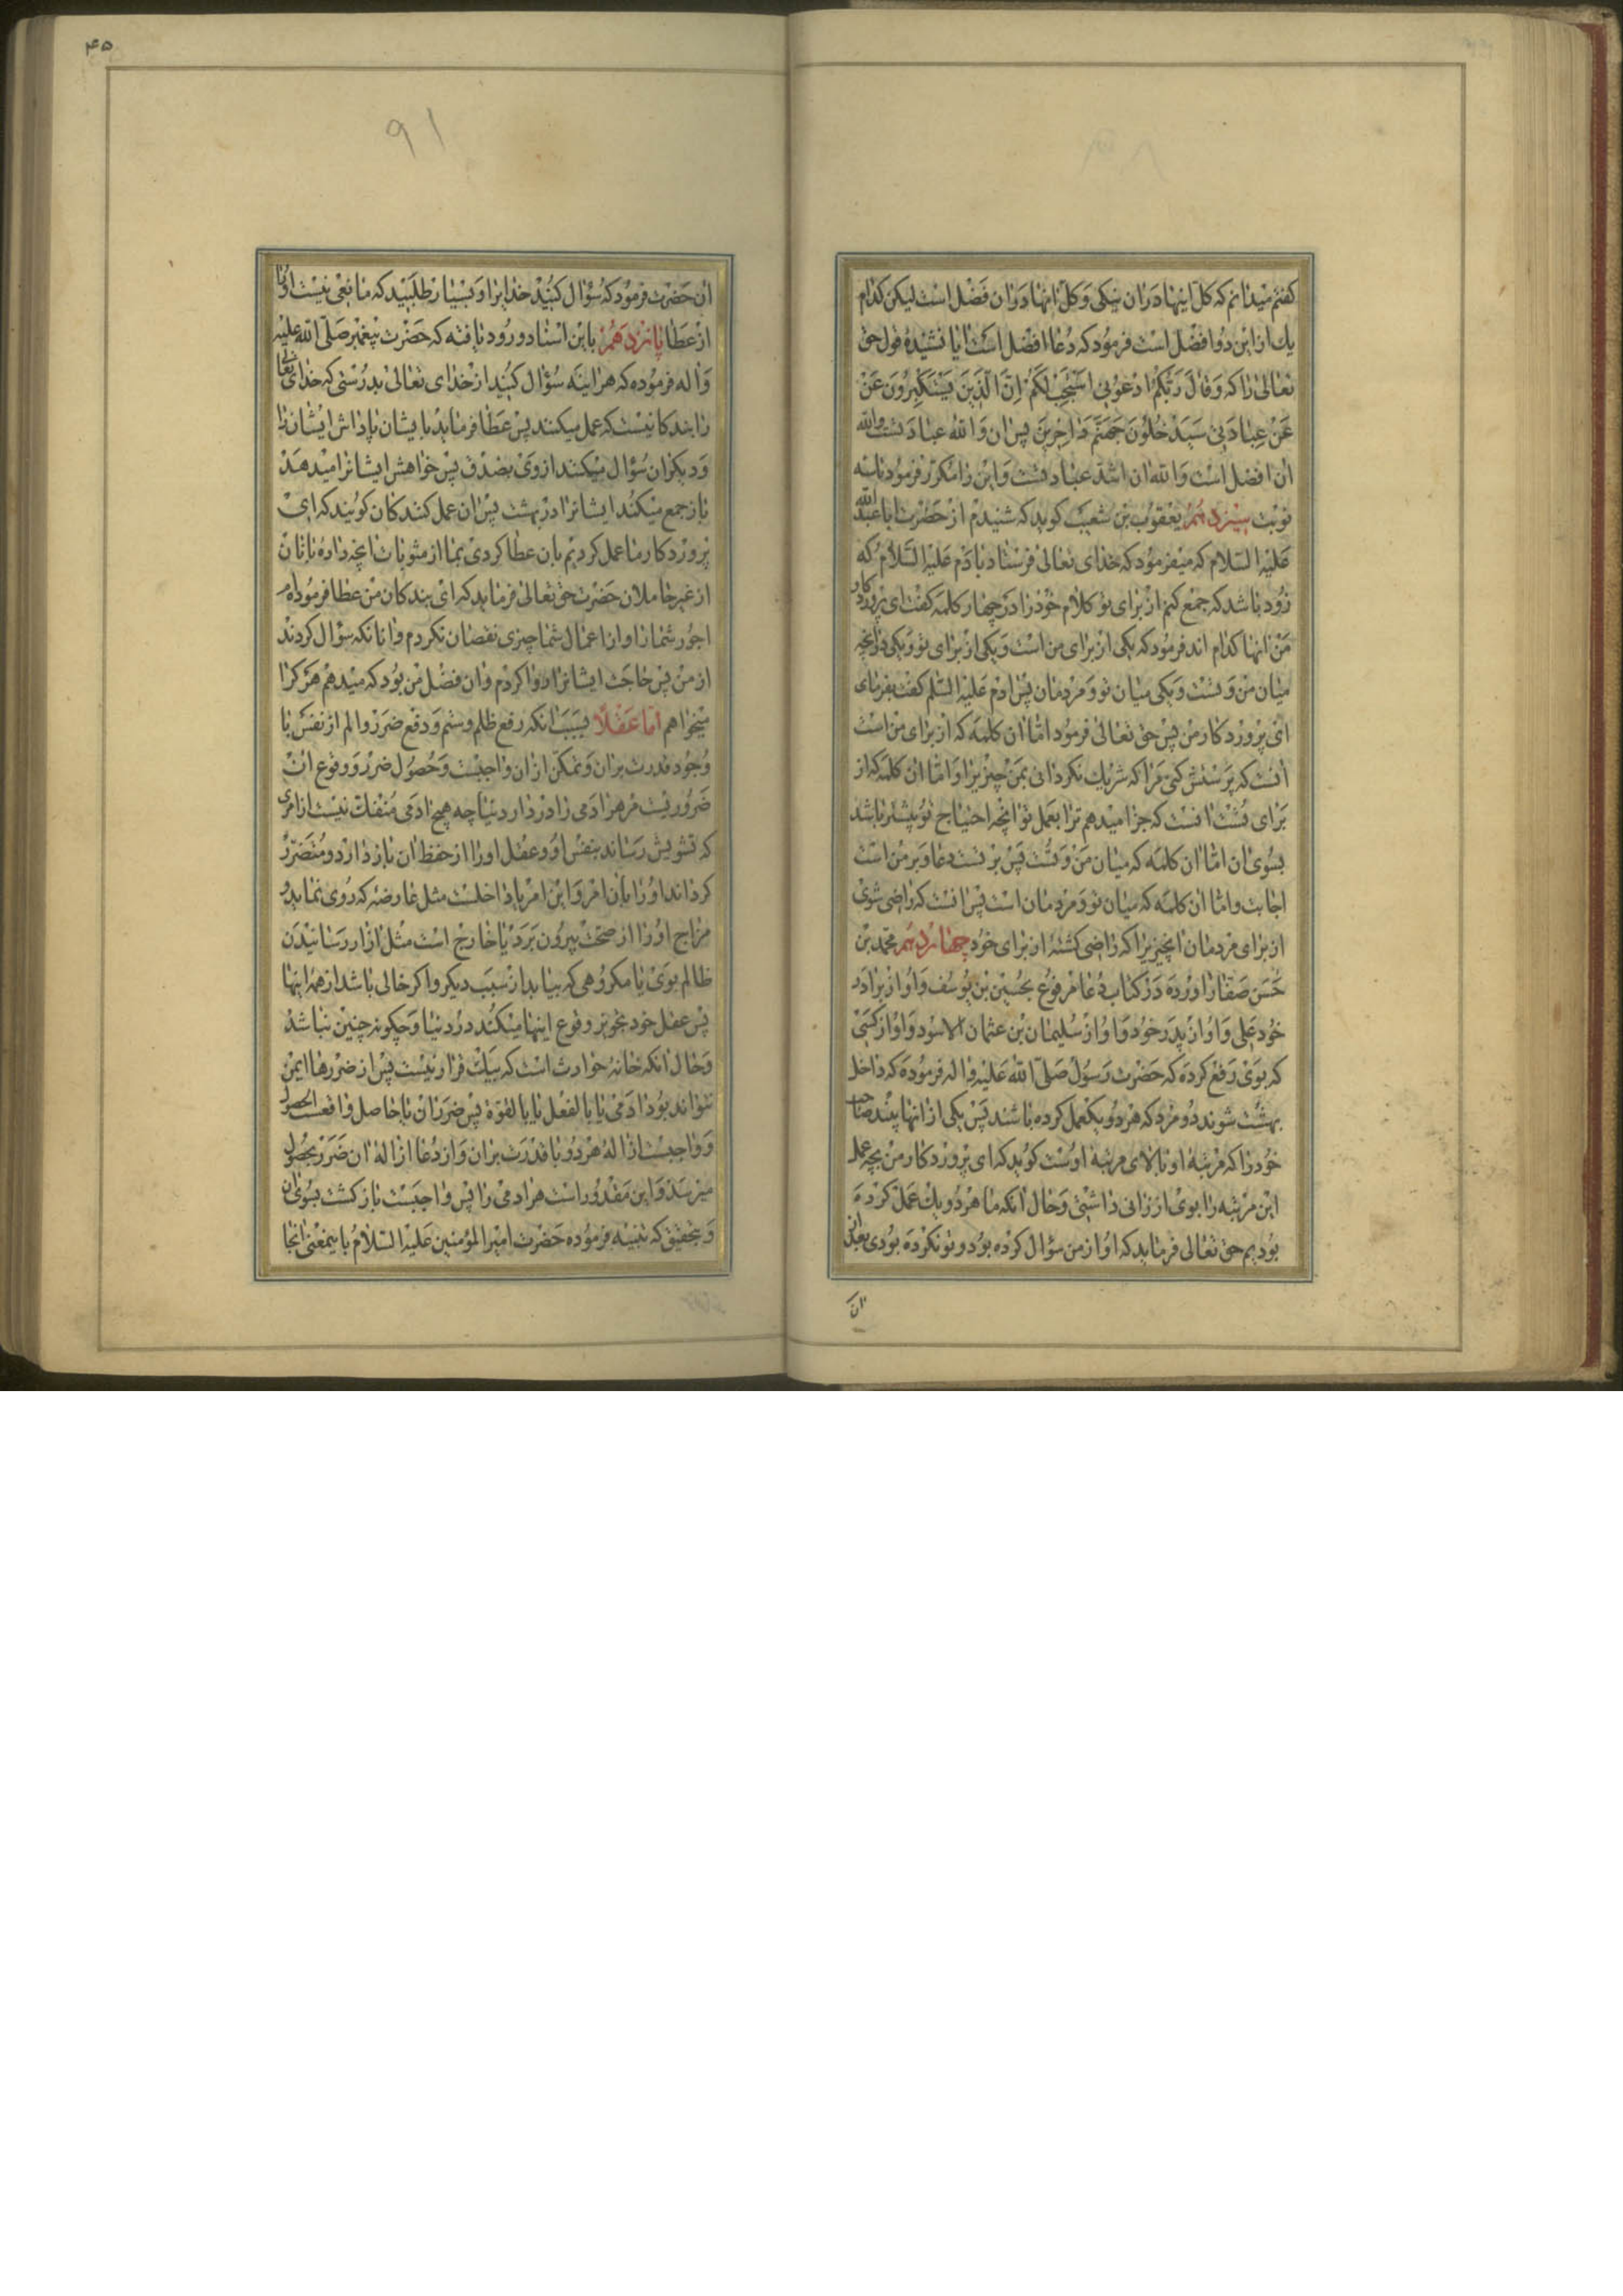 كفتم ميدانم كه كل اينها دران نيكى وكل انها دران فضل است ليكن كدام
يك ازاين دو افضل است فرمود كه دعا افضل است ايا نشنيدهٔ قول حق
تعالى را كه وَقالَ رَبُّكُمُ ادْعُونِي اَسْتَجِبْ لَكُمْ اِنَّ الَّذِينَ يَسْتَكْبِرُونَ عَنْ
عَنْ عِبادَتِي سَيَدْخُلُونَ جَهَنَّمَ داخِرِينَ پس ان والله عبادتست والله
ان افضل است والله ان اشد عبادتست واين را مكرر فرمود تا سه
نوبت سيزدهم يعقوب بن شعيب كويد كه شنيدم از حضرت ابا عبد الله
عليه السلام كه ميفرمود كه خداى تعالى فرستاد بادم عليه السلام كه
زود باشد كه جمع كنم از براى تو كلام خود را در چهار كلمه كفت اى پروردكار
من انها كدام اند فرمود كه يكى از براى من است ويكى از براى تو ويكى درانچه
ميان من وتست ويكى ميان تو ومردمان پس ادم عليه السلم كفت بفرماى
اى پروردكار من پس حق تعالى فرمود اما ان كلمه كه از براى من است
انست كه پرستش كنى مرا كه شريك نكردانى بمن چيزيرا واما ان كلمه كه از
براى تست انست كه جزا ميدهم ترا بعمل تو انچه احتياج تو بيشتر باشد
بسوى ان اما ان كلمه كه ميان من وتست پس بر تست دعا وبر من است
اجابت واما ان كلمه كه ميان تو ومردمان است پس انست كه راضى شوى
از براى مردمان انچيزيرا كه راضى كشتهٔ از براى خود چهاردهم محمد بن
حسن صفار اورده در كتاب دعا مرفوع بحسين بن يوسف واو از برادر
خود على واو از پدر خود واو از سليمان بن عثمان الاسود واو از كسى
كه بوى رفع كرده كه حضرت رسول صلى الله عليه واله فرموده كه داخل
بهشت شوند دو مرد كه هر دو يكعمل كرده باشند پس يكى از انها بيند صاحب
خود را كه مرتبهٔ او بالاى مرتبهٔ اوست كويد كه اى پروردكار من بچه عمل
اين مرتبه را بوى ارزانى داشتى وحال انكه ما هر دو يك عمل كرده
بوديم حق تعالى فرمايد كه او از من سؤال كرده بود وتو نكرده بودى بعد ازان
ان
٤٥
٩١
ان حضرت فرمود كه سؤال كنيد خدايرا وبسيار طلبيد كه مانعى نيست اورا
از عطا پانزدهم باين اسناد ورود يافته كه حضرت پيغمبر صلى الله عليه
واله فرموده كه هراينه سؤال كنيد از خداى تعالى بدرستى كه خداى تعالى
را بندكانيست كه عمل ميكنند پس عطا فرمايد بايشان پاداش ايشانرا
وديكران سؤال ميكنند ازوى بصدق پس خواهش ايشانرا ميدهد
باز جمع ميكند ايشانرا در بهشت پس ان عمل كنندكان كويند كه اى
پروردكار ما عمل كرديم بان عطا كردى بما از مثوبات انچه داده باينان
از غير عاملان حضرت حق تعالى فرمايد كه اى بندكان من عطا فرموده ام
اجور شما را واز اعمال شما چيزى نقصان نكردم وانانكه سؤال كردند
از من پس حاجت ايشانرا روا كردم وان فضل من بود كه ميدهم هر كرا
ميخواهم اما عقلا بسبب انكه رفع ظلم وستم ودفع ضرر والم از نفس با
وجود قدرت بران وتمكن ازان واجبست وحصول ضرر ووقوع ان
ضروريست مر هر ادمى را در دار دنيا چه هيچ ادمى منفك نيست از امرى
كه تشويش رساند بنفس او وعقل اورا از حفظ ان باز دارد ومتضرر
كرداند اورا بان امر واين امر يا داخلست مثل عارضه كه روى نمايد و
مزاج اورا از صحت بيرون برد يا خارج است مثل ازار رسانيدن
ظالم بوى يا مكروهى كه بيابد از سبب ديكر واكر خالى باشد از همه اينها
پس عقل خود تجويز وقوع اينها ميكند در دنيا وچكونه چنين نباشد
وحال انكه خانهٔ حوادث است كه بيك قرار نيست پس از ضررها ايمن
نتواند بود ادمى يا بالفعل يا بالقوة پس ضرر ان يا حاصل واقعست يا الحصول
وواجبست ازالهٔ هر دو با قدرت بران واز دعا ازالهٔ ان ضرر بحصول
ميرسد واين مقدور است هر ادمى را پس واجبست بازكشت بسوى ان
وبتحقيق كه تنبيه فرموده حضرت امير المؤمنين عليه السلام باينمعنى انجا